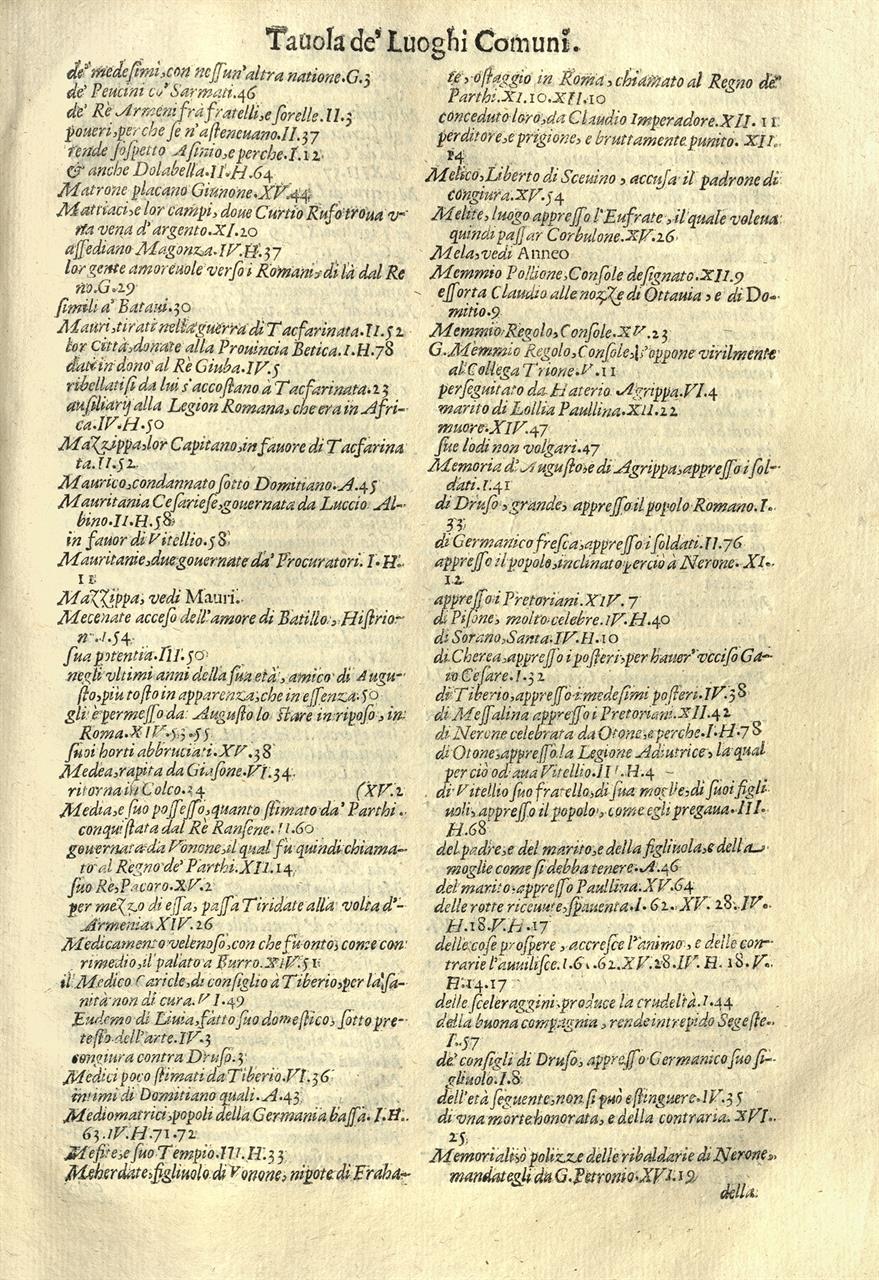 Tauola de' Luoghi Comuni.
de' medesimi, con nessun'altra natione.G.3
de' Peucini co' Sarmati.46
de' Rè Armeni frà fratelli, e sorelle.II.3
poueri, perche se n'asteneuano.II.37
rende sospetto Asinio, e perche.I.12
& anche Dolabella.II.H.64
Matrone placano Giunone.XV.44
Mattiaci, e lor campi, doue Curtio Rufo troua v-
na vena d'argento.XI.20
assediano Magonza.IV.H.37
lor gente amoreuole verso i Romani, di là dal Re
no.G.29
simili a' Bataui.30
Mauri, tirati nella guerra di Tacfarinata.II.52
lor Città, donate alla Prouincia Betica.I.H.78
dati in dono al Rè Giuba.IV.5
ribellatisi da lui s'accostano à Tacfarinata.23
ausiliarij alla Legion Romana, che era in Afri-
ca.IV.H.50
Mazzippa, lor Capitano, in fauore di Tacfarina
ta.II.52
Maurico, condannato sotto Domitiano.A.45
Mauritania Cesariese, gouernata da Luccio Al-
bino.II.H.58
in fauor di Vitellio.58
Mauritanie, due gouernate da' Procuratori. I.H.
11
Mazzippa, vedi Mauri.
Mecenate acceso dell'amore di Batillo, Histrio-
n .I.54
sua potentia.III.50
negli vltimi anni della sua età, amico di Augu-
sto, più tosto in apparenza, che in essenza.50
gli è permesso da Augusto lo stare in riposo, in
Roma.XIV.53.55
suoi horti abbruciati.XV.38
Medea, rapita da Giasone.VI.34
ritorna in Colco.34 (XV.2
Media, e suo possesso, quanto stimato da' Parthi.
conquistata dal Rè Ransene.II.60
gouernata da Vonone, il qual fù quindi chiama-
to al Regno de' Parthi.XII.14
suo Rè, Pacoro.XV.2
per mezzo di essa, passa Tiridate alla volta d'-
Armenia.XIV.26
Medicamento velenoso, con che fù onto, come con
rimedio, il palato a Burro.XIV.51
il Medico Caricle, dì consiglio à Tiberio, per la sa-
nità non di cura.VI.49
Eudemo di Liuia, fatto suo domestico, sotto pre-
testo dell'arte.IV.3
congiura contra Druso.3
Medici poco stimati da Tiberio.VI.36
intimi di Domitiano quali.A.43
Mediomatrici, popoli della Germania bassa. I.H.
63.IV.H.71.72
Mefite, e suo Tempio.III.H.33
Meherdate, figliuolo di Vonone, nipote di Fraha-
te, ostaggio in Roma, chiamato al Regno de'
Parthi.XI.10.XII.10
conceduto loro, da Claudio Imperadore.XII.11
perditore, e prigione, e bruttamente punito. XII.
14
Melico, Liberto di Sceuino, accusa il padrone di
congiura.XV.54
Melite, luogo appresso l'Eufrate, il quale voleua
quindi passar Corbulone.XV.26
Mela, vedi Anneo
Memmio Pollione, Console designato.XII.9
essorta Claudio alle nozze di Ottauia, e di Do-
mitio.9
Memmio Regolo, Console.XV.23
G.Memmio Regolo, Console, s'oppone virilmente
al Collega Trione.V.11
perseguitato da Haterio Agrippa.VI.4
marito di Lollia Paullina.XII.22
muore.XIV.47
sue lodi non volgari.47
Memoria d'Augusto, e di Agrippa, appresso i sol-
dati.I.41
di Druso, grande, appresso il popolo Romano.I.
33
di Germanico fresca, appresso i soldati.II.76
appresso il popolo, inclinato perciò à Nerone. XI.
12
appresso i Pretoriani.XIV.7
di Pisone, molto celebre.IV.H.40
di Sorano, Santa.IV.H.10
di Cherea, appresso i posteri, per hauer' vcciso Ga-
io Cesare.I.32
di Tiberio, appresso i medesimi posteri.IV.38
di Messalina appresso i Pretoriani.XII.42
di Nerone celebrata da Otone, e perche.I.H.78
di Otone, appresso la Legione Adiutrice, la qual
perciò odiaua Vitellio.III.H.4
di Vitellio suo fratello, di sua moglie, di suoi figli
uoli, appresso il popolo, come egli pregaua.III.
H.68
del padre, e del marito, e della figliuola, e della
moglie come si debba tenere.A.46
del marito, appresso Paullina.XV.64
delle rotte riceuute, spauenta.I.62.XV.28.IV.
H.18.V.H.17
delle cose prospere, accresce l'animo, e delle con-
trarie l'auuilisce.I.61.62.XV.28.IV.H.18.V.
H.14.17
delle sceleraggini, produce la crudeltà.I.44
della buona compagnia, rende intrepido Segeste.
I.57
de' consigli di Druso, appresso Germanico suo fi-
gliuolo.I.8
dell'età seguente, non si può estinguere.IV.35
di vna morte honorata, e della contraria.XVI.
25
Memoriali, ò polizze delle ribaldarie di Nerone,
mandategli da G.Petronio.XVI.19
della